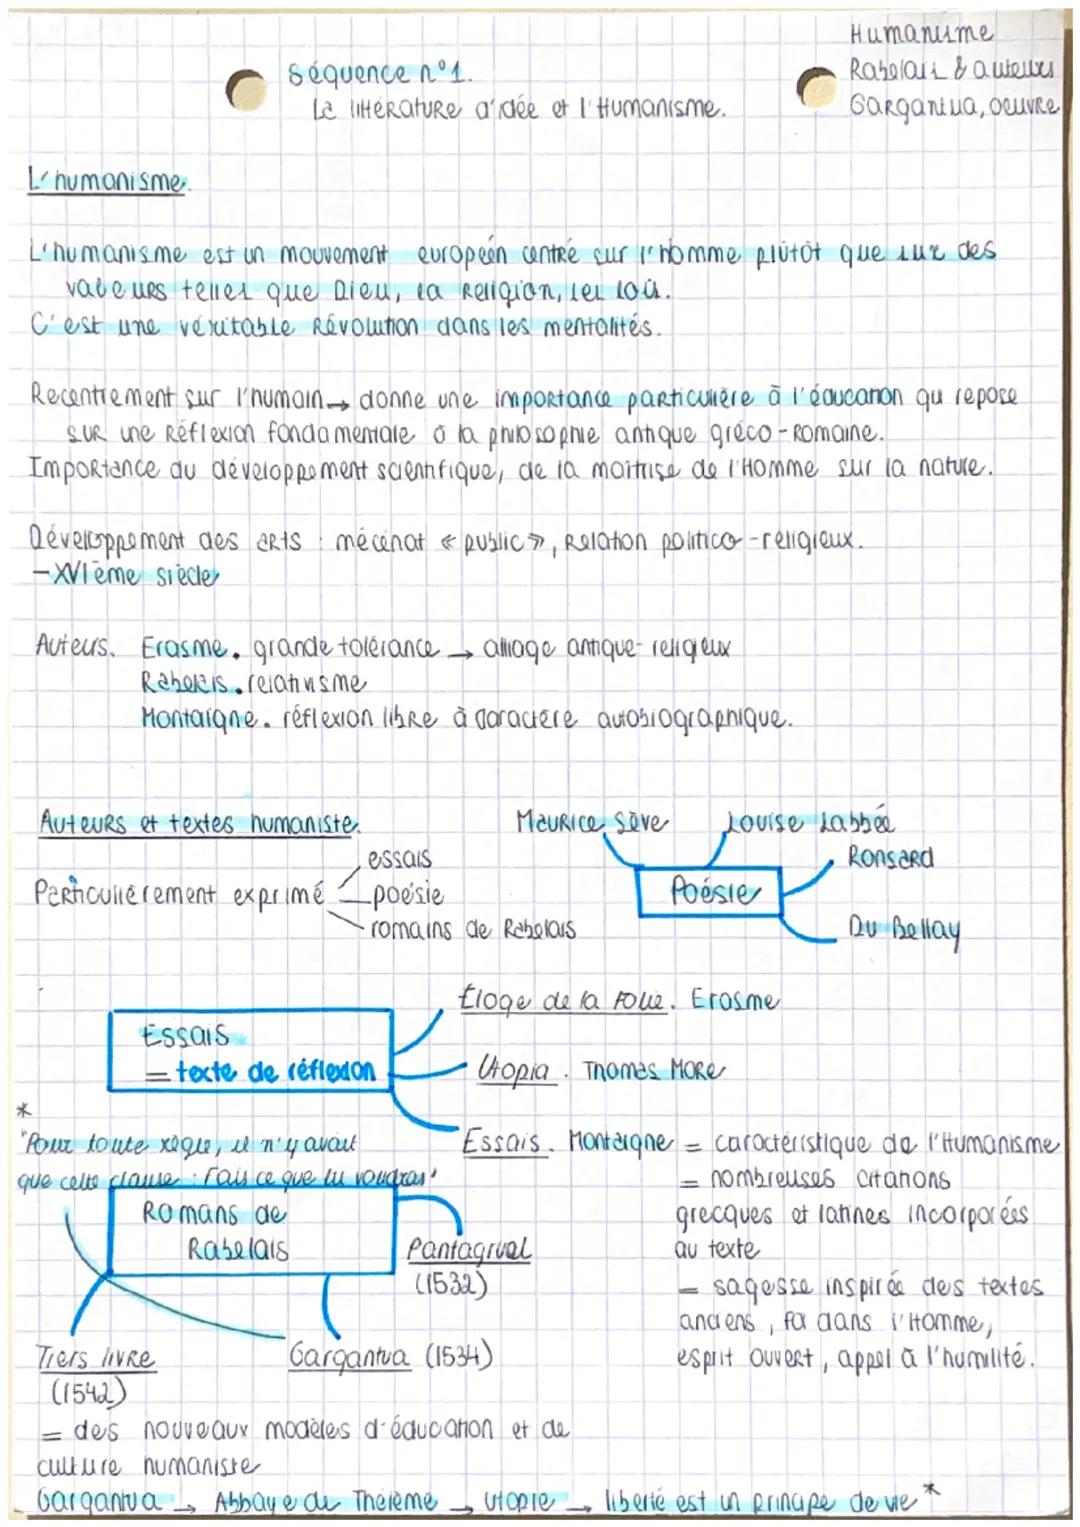 Humanisme
Rabelais & auteurs
Gargantua, oeuvre
Séquence n°1.
La littérature d'idée et l'Humanisme.
L'humanisme.
L'humanisme est un mouvement européen centré sur l'homme plutôt que sur des
valeurs telles que Dieu, la religion, les lois.
C'est une véritable Révolution dans les mentalités.
Recentrement sur l'humain → donne une importance particulière à l'éducation qui repose
sur une Réflexion fondamentale à la philosophie antique gréco-Romaine.
Importance du développement scientifique, de la maîtrise de l'Homme sur la nature.
Développement des arts : mécénat « public », Relation politico-religieux.
- XVIème siècle
Auteurs. Erasme. grande tolérance → alliage antique-religieux
Rabelais. relativisme
Montaigne. réflexion libre à caractère autobiographique.
Auteurs et textes humaniste.
Particulièrement exprimé
essais
poésie
romains de Rabelais
Maurice Sève
Louise Labbée
Ronsard
Poésie
Du Bellay
Essais
= texte de réflexion
Éloge de la Folie. Erasme
Utopia. Thomas More
Essais. Montaigne = caractéristique de l'Humanisme
= nombreuses citations
grecques et latines incorporées
au texte
= sagesse inspirée des textes
anciens, foi dans l'Homme,
esprit ouvert, appel à l'humilité.
*
"Pour toute règle, il n'y avait
que cette clause : Fais ce que tu voudras"
Romans de
Rabelais
Pantagruel
(1532)
Tiers livre
(1542)
Gargantua (1534)
= des nouveaux modèles d'éducation et de
culture humaniste
Gargantua → Abbaye de Thélème → utopie → liberté est un principe de vie *